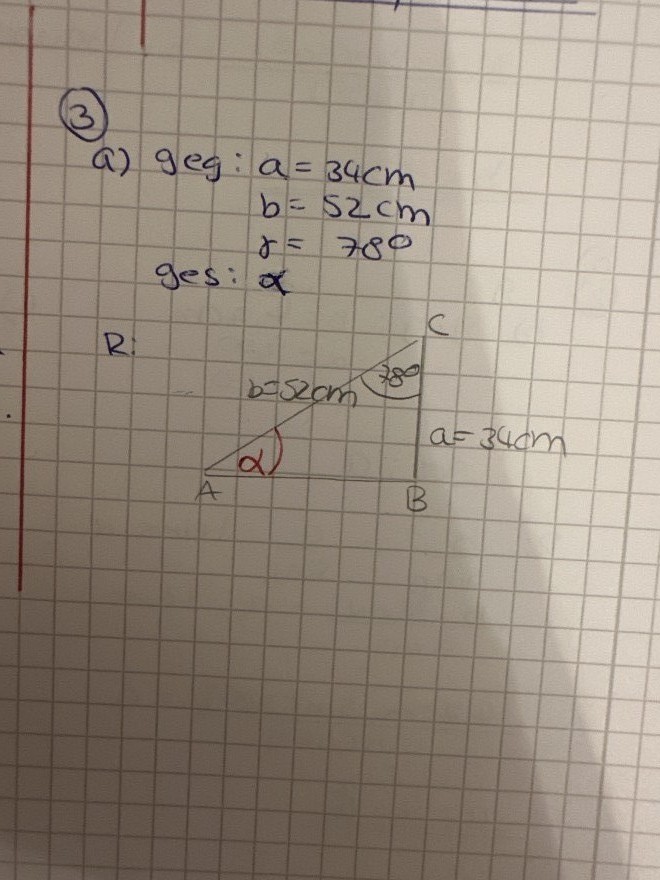 3
a) geg: a = 34cm
b = 52cm
γ = 78°
ges: α
R:
C
78°
b=52cm
a=34cm
α
A
B